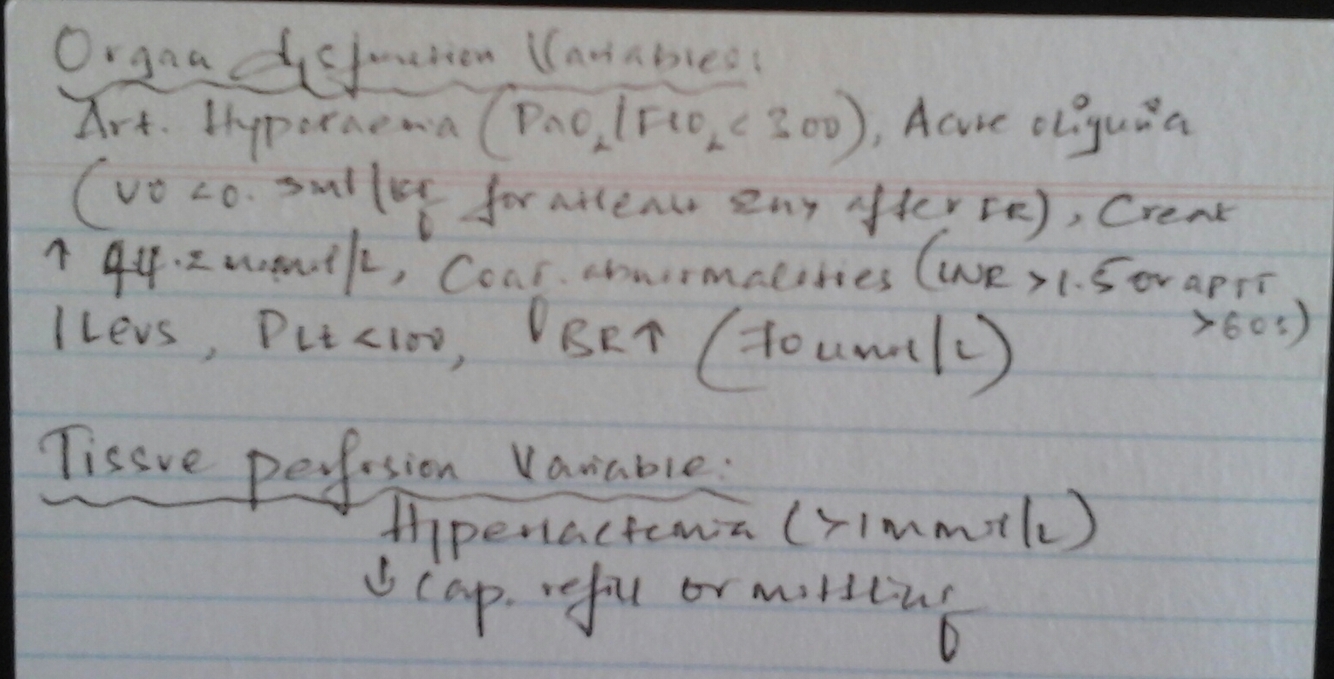 Organ dysfunction Variables:
Art. Hypoxaemia (PaO₂/FiO₂ < 300), Acute oliguria
(UO <0.5ml/kg for atleast 2hr after FR), Creat
↑ 44.2 mmol/L, Coag. abnormalities (INR >1.5 or aPTT
>60s)
Ileus, PLt <100, BR↑ (70 umol/L)
Tissue perfusion Variable:
Hyperlactemia (>1mmol/L)
↓ Cap. refill or mottling